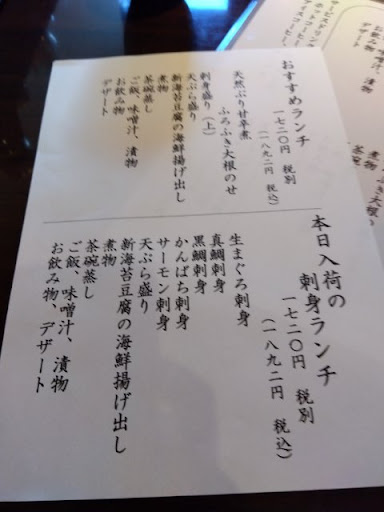 おすすめランチ
一七二〇円 税別
(一八九二円 税込)
天然ぶり甘辛煮
ふろふき大根のせ
刺身盛り(上)
天ぷら盛り
新海苔豆腐の海鮮揚げ出し
煮物
茶碗蒸し
ご飯、味噌汁、漬物
お飲み物
デザート
本日入荷の
刺身ランチ
一七二〇円 税別
(一八九二円 税込)
生まぐろ刺身
真鯛刺身
黒鯛刺身
かんぱち刺身
サーモン刺身
天ぷら盛り
新海苔豆腐の海鮮揚げ出し
煮物
茶碗蒸し
ご飯、味噌汁、漬物
お飲み物、デザート